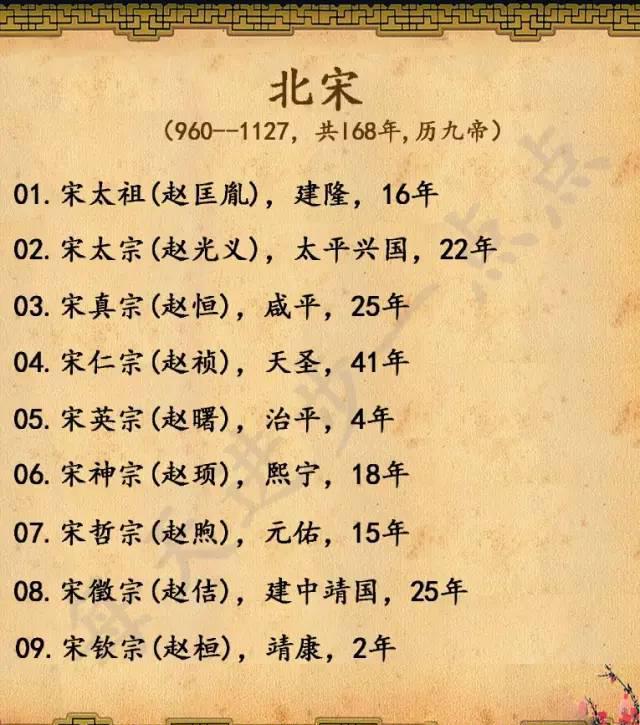 北宋
（960--1127，共168年,历九帝）
01.宋太祖(赵匡胤)，建隆，16年
02.宋太宗(赵光义)，太平兴国，22年
03.宋真宗(赵恒)，咸平，25年
04.宋仁宗(赵祯)，天圣，41年
05.宋英宗(赵曙)，治平，4年
06.宋神宗(赵顼)，熙宁，18年
07.宋哲宗(赵煦)，元佑，15年
08.宋徽宗(赵佶)，建中靖国，25年
09.宋钦宗(赵桓)，靖康，2年
每天进步一点点